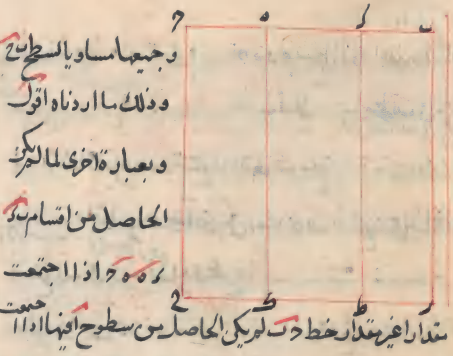 ح ه ء ب
وجميعها مساويا لسطح بح
وذلك ما اردناه اقول
وبعبارة اخرى لما لم يكن
الحاصل من اقسام بء
ء ه ه ح اذا اجتمعت
مقدارا غير مقدار خط حب لم يكن الحاصل من سطوح افيها اذا اجتمعت